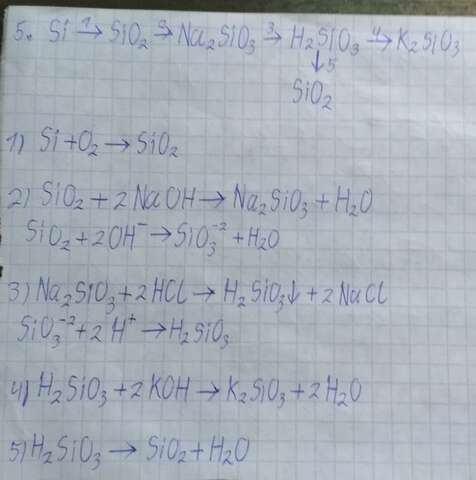 5. Si →¹ SiO₂ →² Na₂SiO₃ →³ H₂SiO₃ →⁴ K₂SiO₃
↓5
SiO₂
1) Si + O₂ → SiO₂
2) SiO₂ + 2NaOH → Na₂SiO₃ + H₂O
SiO₂ + 2OH⁻ → SiO₃⁻² + H₂O
3) Na₂SiO₃ + 2HCl → H₂SiO₃↓ + 2NaCl
SiO₃⁻² + 2H⁺ → H₂SiO₃
4) H₂SiO₃ + 2KOH → K₂SiO₃ + 2H₂O
5) H₂SiO₃ → SiO₂ + H₂O